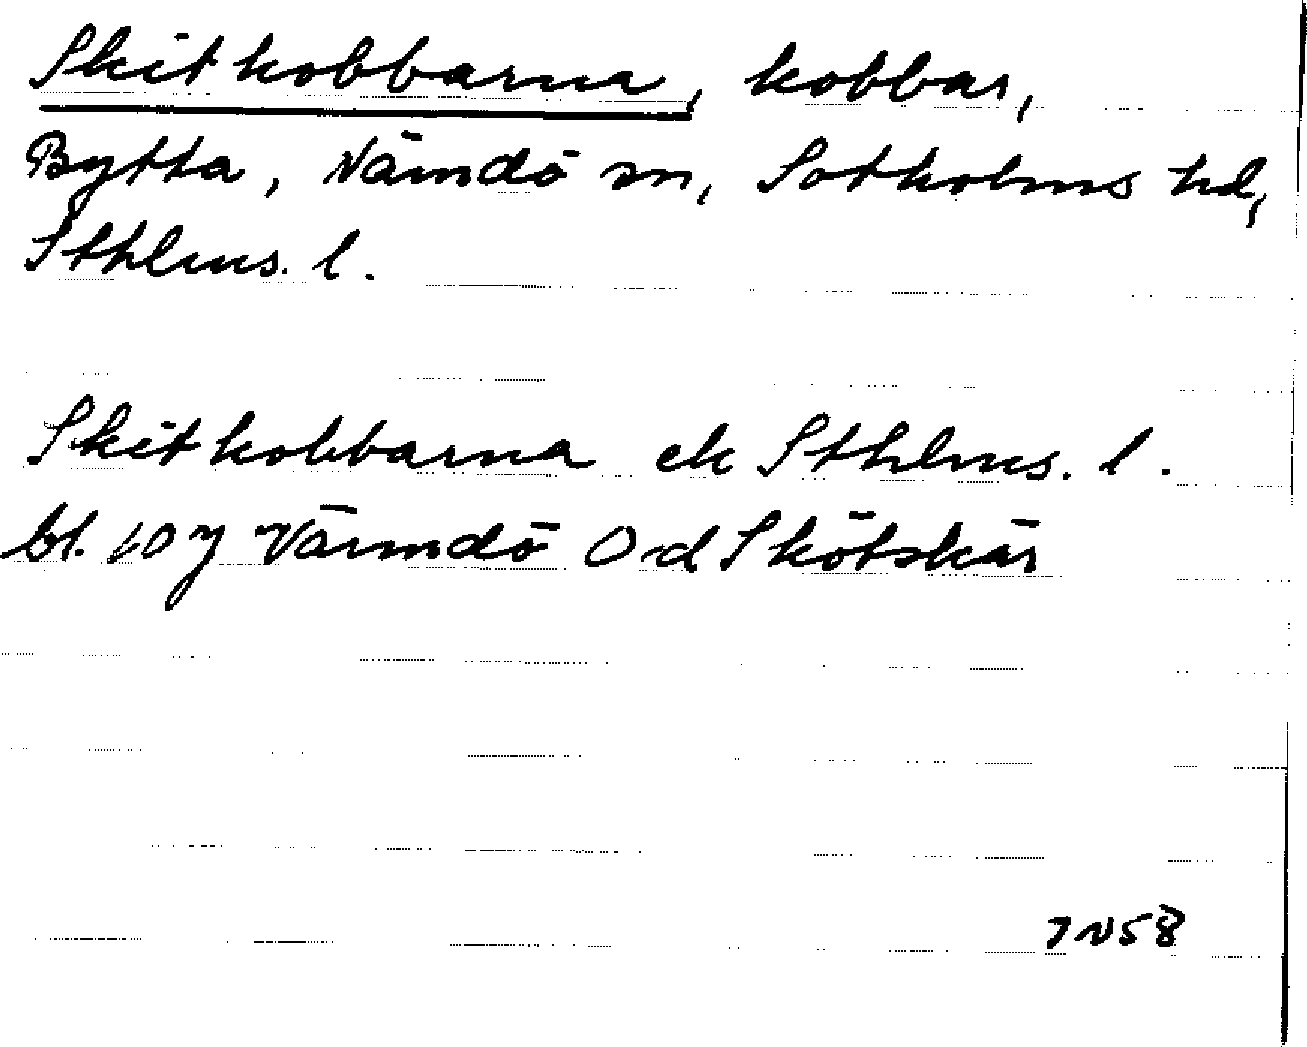 Skitkobbarna, kobbar,
Bytta, Nämdö sn, Sotholms hd,
Sthlms. l.
Skitkobbarna ek Sthlms. l.
bl. 107 Värmdö Od Skötskär